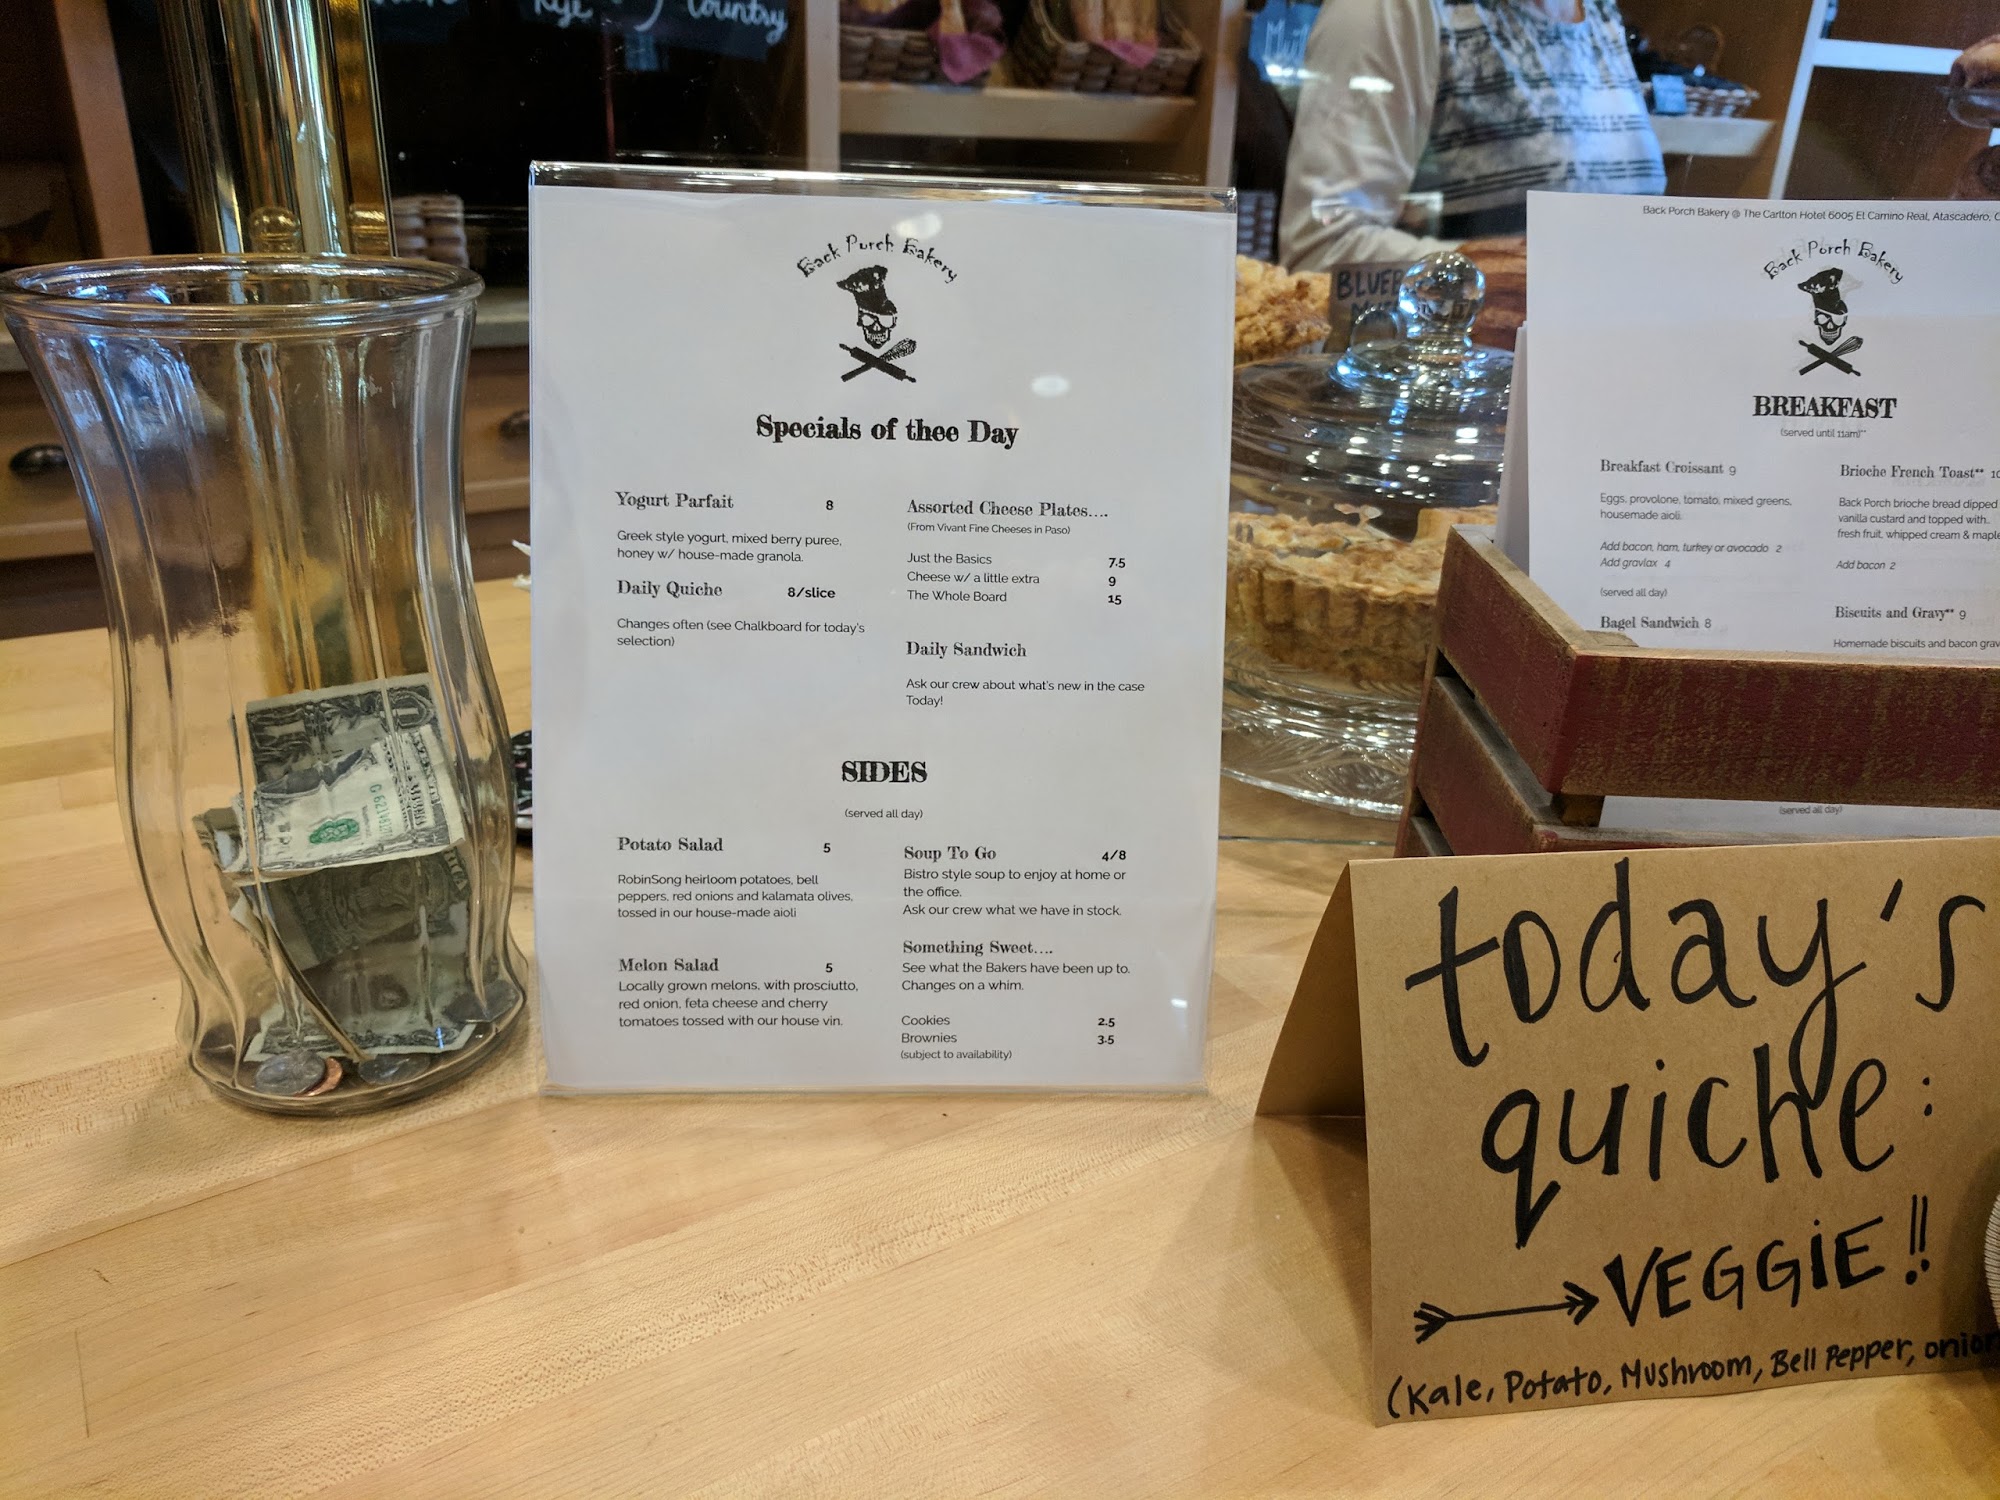 Rye
Country
Back Porch Bakery
Specials of thee Day
Yogurt Parfait 8
Greek style yogurt, mixed berry puree,
honey w/ house-made granola.
Daily Quiche 8/slice
Changes often (see Chalkboard for today's
selection)
Assorted Cheese Plates....
(From Vivant Fine Cheeses in Paso)
Just the Basics 7.5
Cheese w/ a little extra 9
The Whole Board 15
Daily Sandwich
Ask our crew about what's new in the case
Today!
SIDES
(served all day)
Potato Salad 5
RobinSong heirloom potatoes, bell
peppers, red onions and kalamata olives,
tossed in our house-made aioli
Melon Salad 5
Locally grown melons, with prosciutto,
red onion, feta cheese and cherry
tomatoes tossed with our house vin.
Soup To Go 4/8
Bistro style soup to enjoy at home or
the office.
Ask our crew what we have in stock.
Something Sweet....
See what the Bakers have been up to.
Changes on a whim.
Cookies 2.5
Brownies 3.5
(subject to availability)
Back Porch Bakery @ The Carlton Hotel 6005 El Camino Real, Atascadero, C
Back Porch Bakery
BREAKFAST
(served until 11am)**
Breakfast Croissant 9
Eggs, provolone, tomato, mixed greens,
housemade aioli.
Add bacon, ham, turkey or avocado 2
Add gravlax 4
(served all day)
Bagel Sandwich 8
Brioche French Toast** 10
Back Porch brioche bread dipped
vanilla custard and topped with..
fresh fruit, whipped cream & maple
Add bacon 2
Biscuits and Gravy** 9
Homemade biscuits and bacon grav
(served all day)
today's
quiche:
VEGGIE!!
(Kale, Potato, Mushroom, Bell Pepper, onion